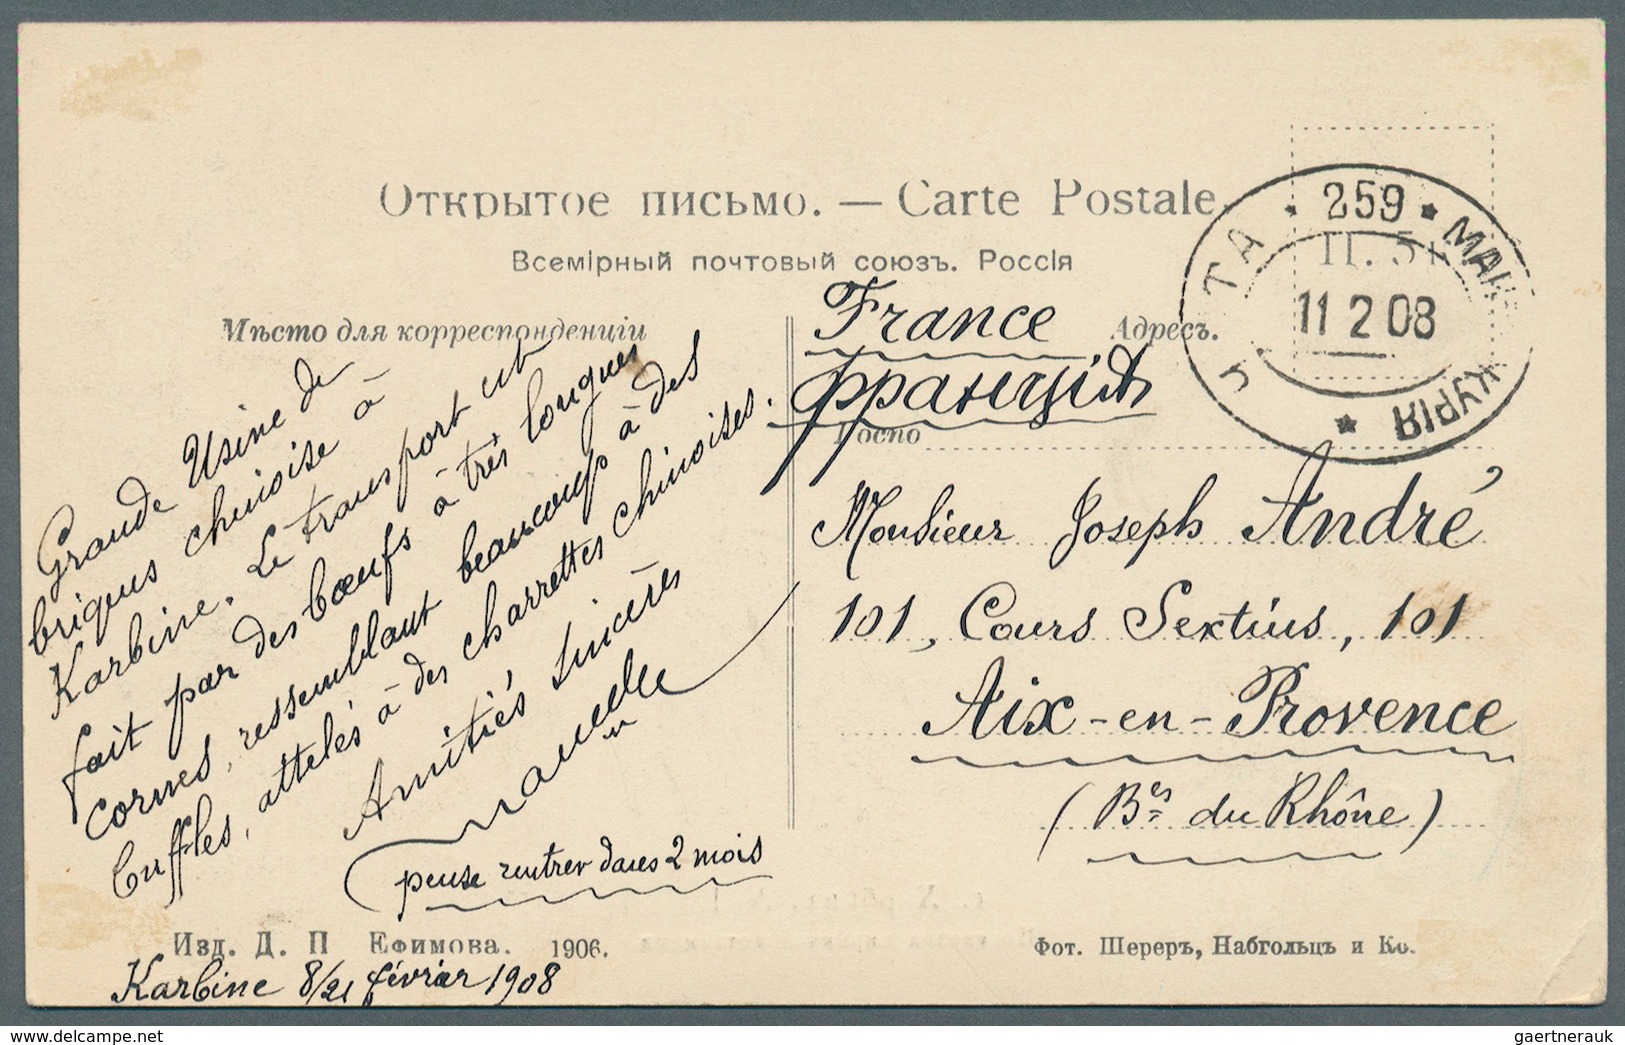 Открытое письмо. — Carte Postale.
Всемірный почтовый союзъ. Россія
Мѣсто для корреспонденціи
Адресъ.
France
Франція
259
МАНЬ
11 2 08
П. 5
Grande Usine de
briques chinoise à
Karbine. Le transport est
fait par des bœufs à très longues
cornes, ressemblant beaucoup à des
buffles, attelés à des charrettes chinoises.
Amitiés sincères
pense rentrer dans 2 mois
Monsieur Joseph André
101, Cours Sextius, 101
Aix-en-Provence
(Bes du Rhône)
Изд. Д. П Ефимова. 1906.
Фот. Шереръ, Набгольцъ и Ко.
Karbine 8/21 février 1908
www.delcampe.net
gaertnerauk